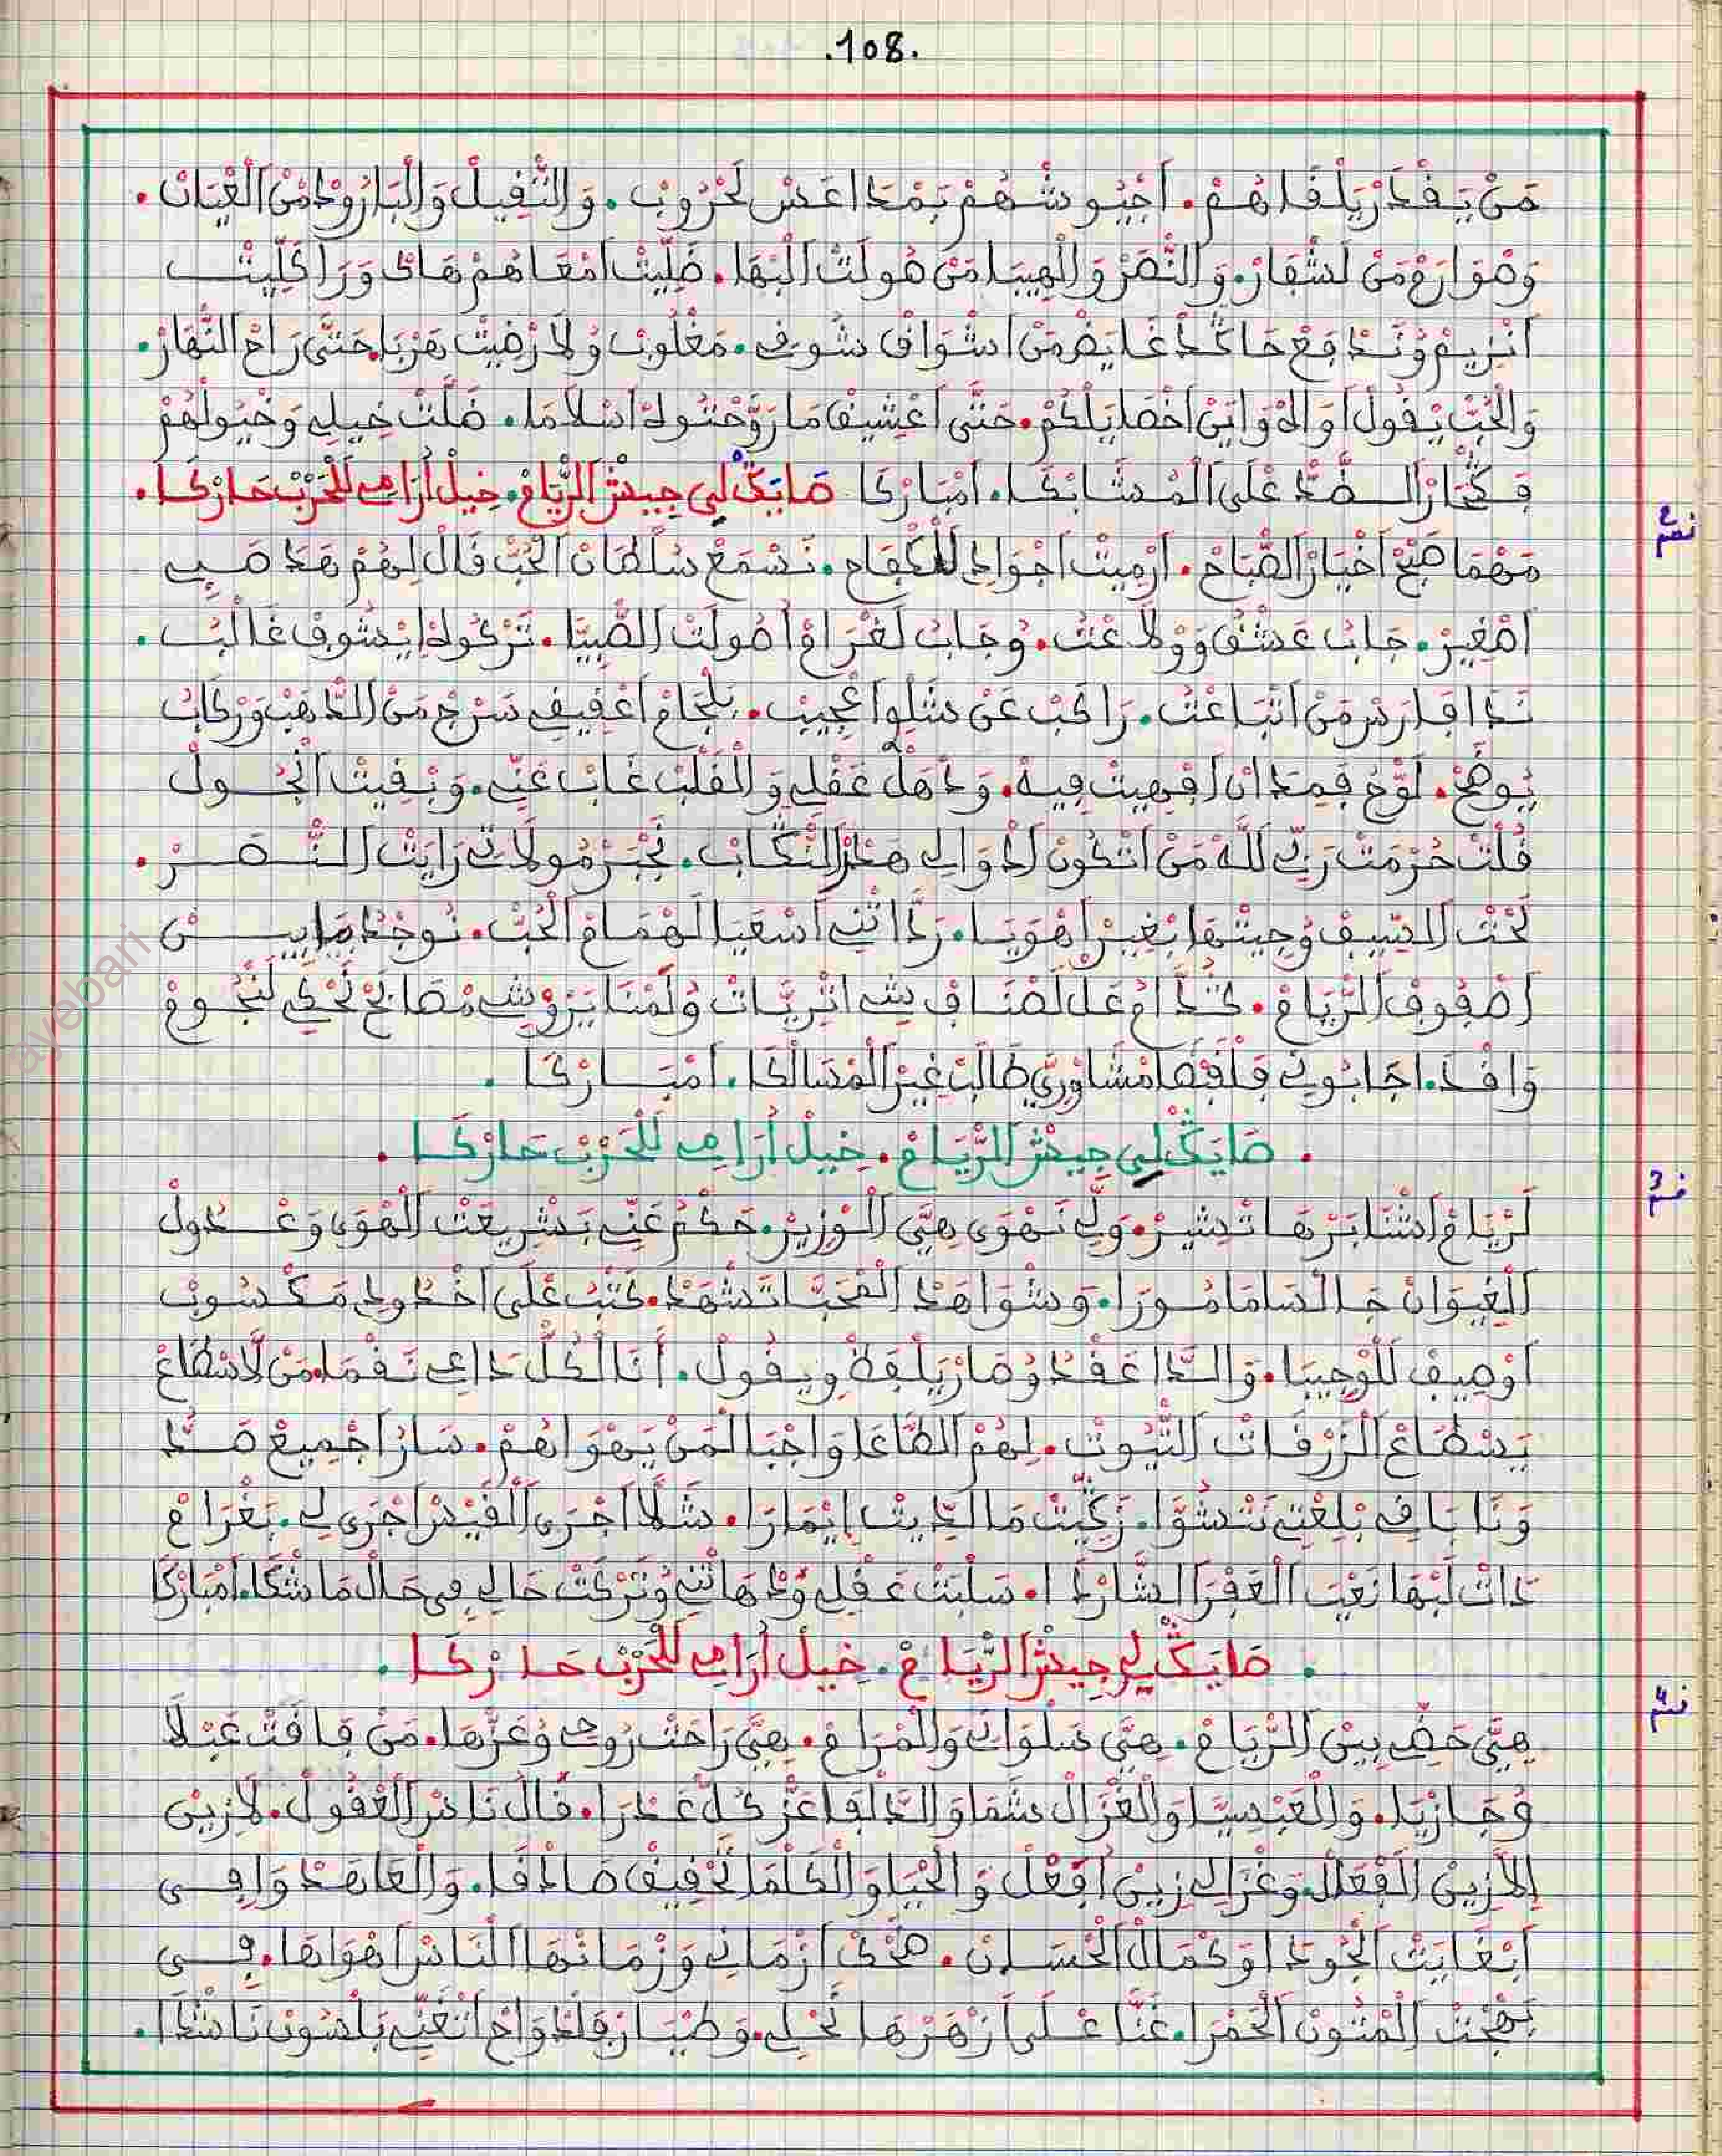 .108.
مَنْ يَقْدَرْ يَلْقَاهُمْ. اجْيُوشْهُمْ بَمْدَاعَسْ لَحْرُوبْ. وَالتّْفِيلْ وَالْبَارُودْ مَنْ الْعْيَانْ.
وَصْوَارَمْ مَنْ لَشْفَارْ. وَالنّْصَرْ وَالْهِيبَا مَنْ صُولَتْ الْبْهَا. ضَلِّيتْ امْعَاهُمْ هَاكْ وَرَا كَلِّيتْ
انْزِيمْ وُنَدْفَعْ حَاكْدْ غَايَضْ مَنْ اشْوَافْ شُوفِي. مَغْلُوبْ وُلَا رْضِيتْ هَرْبَا حَتَّى رَاحْ النّْهَارْ.
وَالْحُبّْ يْقُولْ اوَاهْ وَايَنْ اخْصَايَلْكُمْ. حَتَّى اعْشِيقْ مَا رَوَّحْتُوهْ اسْلَامَا. ضَلَّتْ خِيلِي وَخْيُولْهُمْ
فَكْجَارْ الضَّدّْ عْلَى الْمْشَابْكَا. امْبَارْكَا صَايَكْ لِي جِيشْ الرّْيَامْ. خِيلْ أُرَامِي لَلْحَرْبْ حَارْكَا.
نصم 2
مَهْمَا صْبَحْ اخْبَارْ الصّْبَاحْ. ارْمِيتْ اجْوَادِي لَلْكْفَاحْ. نَسْمَعْ سُلْطَانْ الْحُبّْ قَالْ لِهُمْ هَدَا صْبِي
اصْغِيرْ. جَابُ عَشْقُ وَوْلَاعْتُ. وُجَابُ لَغْرَامْ اصُولَتْ الصّْبِيَّا. تَرْكُوهْ إِيشُوفْ غَالْبُ.
نَدَا فَارَسْ مَنْ اتْبَاعْتُ. رَاكَبْ عَنْ شَلْوْ اعْجِيبْ. بَلْجَامْ اعْقِيقِي سَرْجْ مَنْ الدّْهَبْ وَرْكَابُ
يُوضَحْ. لَوَّحْ فَمَدَانْ افْهِيتْ فِيهْ. وَدْهَلْ عَقْلِي وَالْقَلْبْ غَابْ عَنِّي. وَبْقِيتْ انْجُولْ
قُلْتْ حُرْمَتْ رَبِّي لَلَّهْ مَنْ اتْكُونْ ادْوَالِي هَدْ النّْكَابْ. نَجْبَرْ مُولَاتِي رَايَتْ النّْصَرْ.
تَحْتْ السِّيفْ وُجِيتْهَا بْغِيرْ اهْوَيَا. رَدَّاتْنِي اسْعَيَا لَهْمَامْ الْحُبّْ. نُوجَدْهَا بِينْ
اصْفُوفْ الرّْيَامْ. لْمْنَا يَزْوِي مْصَابَحْ تَحْكِي لَنْجُومْ
وَافْدَ. اجَابُونِي فَلْفْضَا مْشَاوْرِي طَالَبْ غِيرْ الْمْسَالْكَا. امْبَارْكَا.
. صَايَكْ لِي جِيشْ الرّْيَامْ. خِيلْ أُرَامِي لَلْحَرْبْ حَارْكَا.
قسم 3
لَرْيَامْ اشْنَابَرْهَا تْشِيرْ. وَلِّي نَهْوَى هِيَّ الْوْزِيرْ. حَكْمُ عَنِّي بَشْرِيعْتْ الْهْوَى وَعْدُولْ
الْغِيوَانْ جَالْسَا مَامُورَا. وَشْوَاهَدْ الْمْحَبَّا تَشْهَدْ. كَتْبُ عْلَى اخْدُودِي مَكْسُوبْ
اوْصِيفْ لَلْوْجِيبَا. وَالدَّاعَقْدُ وُصَارْ يَلْفَظْ وِيقُولْ. أَنَا لْكُلّْ دَاعِي نَقْمَا. مَنْ لَاسْطَاعْ
يَسْطَاعْ الزَرْقَاتْ التّْيُوتْ. لِهُمْ الطَّاعَا وَاجْبَا لَمَنْ يَهْوَاهُمْ. سَارُ اجْمِيعْ صَدُّ
وَنَا بَاقِي بْلِيعْتِي نَتْشَوَّا. زَكِّيتْ مَالدِيتْ إِيْمَارَا. شَلَّا اجْرَى الْقَيْسْ اجْرَى لِي. بَغْرَامْ
دَاتْ لَبْهَا نَعْتْ الْعَفْرَا الشَّارْدَا. سَلْبَتْ عَقْلِي وَدْهَاتْنِي وُتَرْكَتْ حَالِي فِي حَالْ مَا شْكَا. امْبَارْكَا
. صَايَكْ لِي جِيشْ الرّْيَامْ. خِيلْ أُرَامِي لَلْحَرْبْ حَارْكَا.
قسم 4
هِيَّ حَضِّي بِينْ الرّْيَامْ. هِيَّ سَلْوَانِي وَالْمْرَامْ. هِيَّ رَاحْتْ رُوحِي وُعَزّْهَا. مَنْ فَاقَتْ عَبْلَا
وُجَازْيَا. وَالْعَبْسِيَّا وَالْغْزَالْ شَمَا وَالدَّالْفَا عَزّْ كُلّْ عَدْرَا. قَالْ نَاسْ الْعْقُولْ. لَا زِينْ
إِلَا زِينْ الْفْعَالْ. وَغْزَالِي زِينْ أُفْعَلْ وَالْحْيَا وَالْكَلْمَا تَحْقِيقْ صَادْقَا. وَالْعَاهَدْ وَافِي
ابْغَايَتْ الْجُودَا وَكْمَالْ الْحْسَانْ. ضَحْكْ ازْمَانِي وَزْمَانْهَا النَّاسْ اهْوَاهَا. فِي
بَهْجْتْ الْمْتُونْ الْحَمْرَا. غَنَّا عْلَى زَهَرْهَا نَحْلِي. وَطْيَارْ فَلَدْوَاحْ اتْغَنِّي بَلْسُونْ نَاشْدَا.